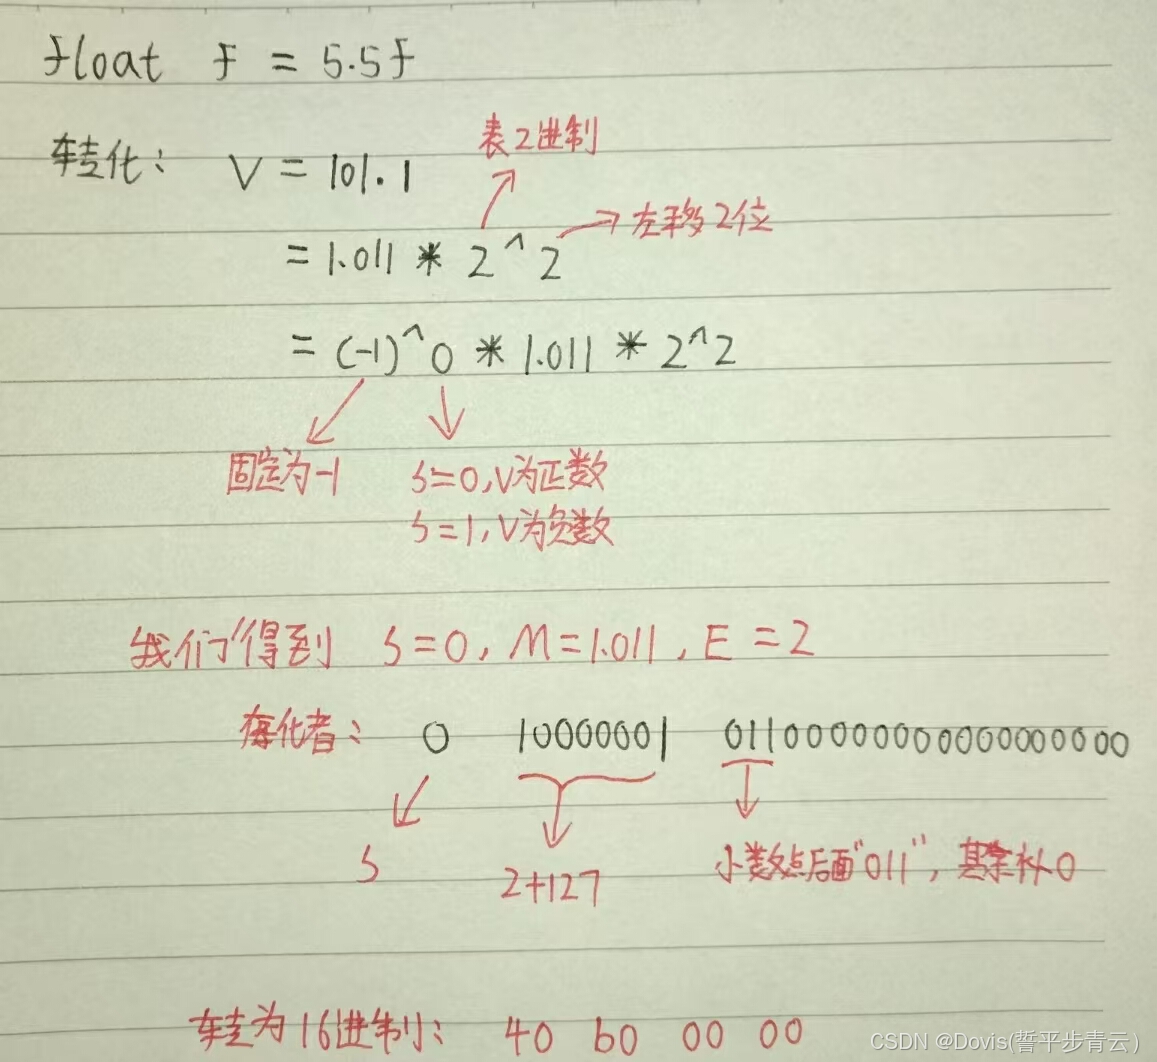 float f = 5.5f
转化： V = 101.1
表2进制
左移2位
= 1.011 * 2^2
= (-1)^0 * 1.011 * 2^2
固定为-1 S=0,V为正数
S=1,V为负数
我们得到 S=0, M=1.011, E=2
0 10000001 01100000000000000000000
S 2+127 小数点后面"011", 其余补0
转为16进制： 40 b0 00 00
CSDN @Dovis(誓平步青云)